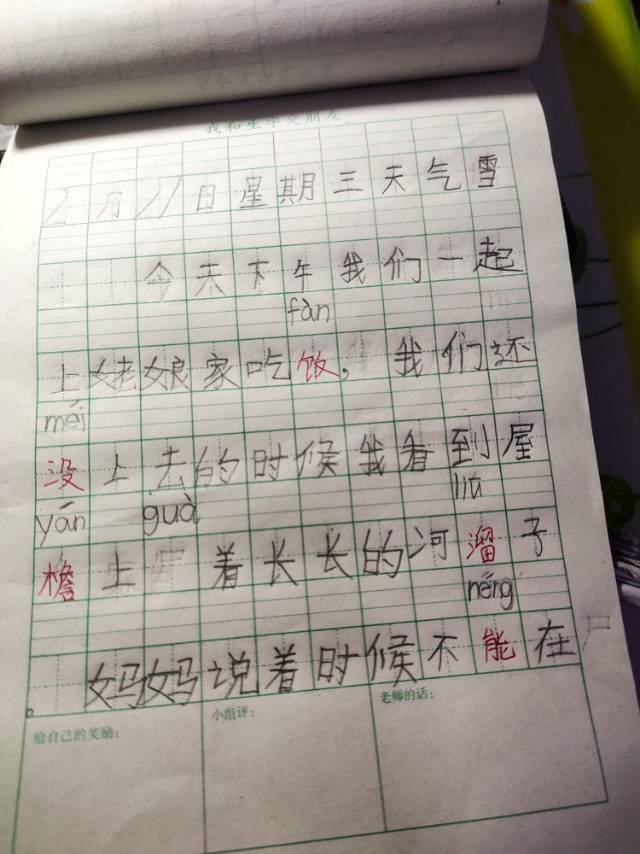 我和生字交朋友
2月21日星期三天气雪
今天下午我们一起
fàn
上姥娘家吃饭，我们还
méi
没上去的时候我看到屋
liū
yán guà
檐上着长长的河溜子
néng
。妈妈说着时候不能在
给自己的奖励：
小组评：
老师的话：